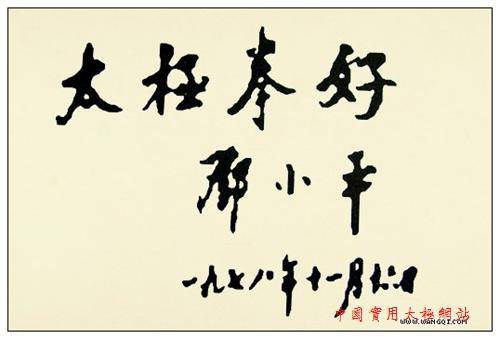 太极拳好
邓小平
一九七八年十一月十六日
中國實用太極網站
WWW.WANGQI.COM